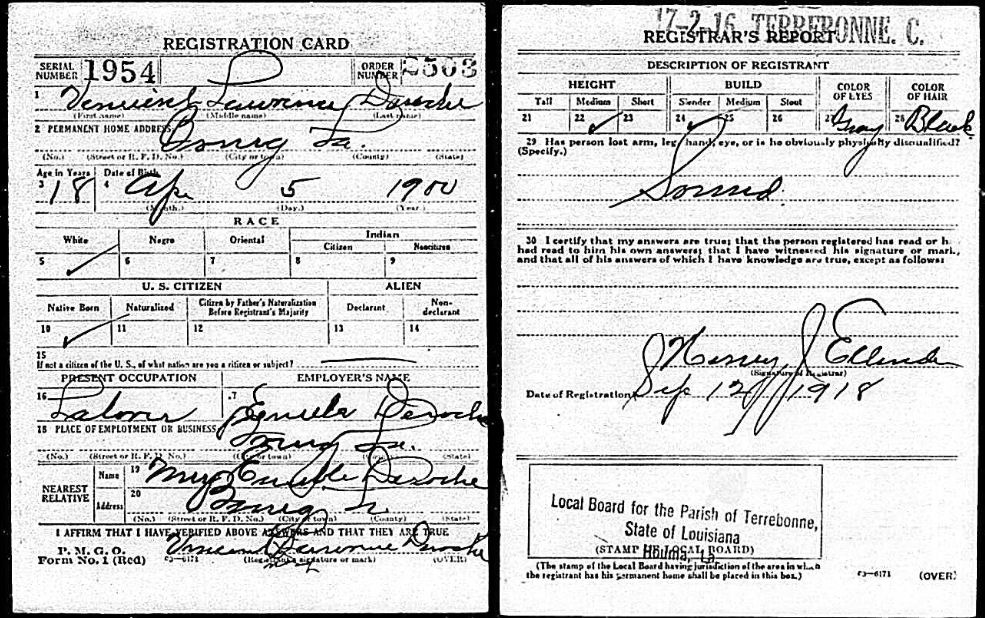 REGISTRATION CARD
SERIAL NUMBER 1954
ORDER NUMBER 2503
1 Lawrence Deroche
(First name) (Middle name) (Last name)
2 PERMANENT HOME ADDRESS:
Bourg La.
(No.) (Street or R. F. D. No.) (City or town) (County) (State)
Age in Years Date of Birth
3 18 4 Apr 5 1900
(Month.) (Day.) (Year.)
RACE
White Negro Oriental Indian
Citizen Noncitizen
5 ✓ 6 7 8 9
U. S. CITIZEN ALIEN
Native Born Naturalized Citizen by Father's Naturalization Before Registrant's Majority Declarant Non-declarant
10 ✓ 11 12 13 14
15
If not a citizen of the U. S., of what nation are you a citizen or subject?
PRESENT OCCUPATION EMPLOYER'S NAME
16 Laborer 17 Deroche
18 PLACE OF EMPLOYMENT OR BUSINESS
Bourg La.
(No.) (Street or R. F. D. No.) (City or town) (County) (State)
NEAREST RELATIVE
Name 19 Deroche
Address 20 Bourg La
(No.) (Street or R. F. D. No.) (City or town) (County) (State)
I AFFIRM THAT I HAVE VERIFIED ABOVE ANSWERS AND THAT THEY ARE TRUE
P. M. G. O.
Form No. 1 (Red) 03—6171 (Registrant's signature or mark) (OVER)
Lawrence Deroche
17-2-16 TERREBONNE. C.
REGISTRAR'S REPORT
DESCRIPTION OF REGISTRANT
HEIGHT BUILD COLOR OF EYES COLOR OF HAIR
Tall Medium Short Slender Medium Stout
21 22 ✓ 23 24 ✓ 25 26 27 Gray 28 Black
29 Has person lost arm, leg, hand, eye, or is he obviously physically disqualified?
(Specify.)
Sound.
30 I certify that my answers are true; that the person registered has read or h
had read to him his own answers; that I have witnessed his signature or mark,
and that all of his answers of which I have knowledge are true, except as follows:
J Harvey J Ellender
(Signature of Registrar)
Date of Registration Sep 12 1918
Local Board for the Parish of Terrebonne,
State of Louisiana
(STAMP OF LOCAL BOARD)
Houma, La.
(The stamp of the Local Board having jurisdiction of the area in which
the registrant has his permanent home shall be placed in this box.)
03—6171 (OVER)